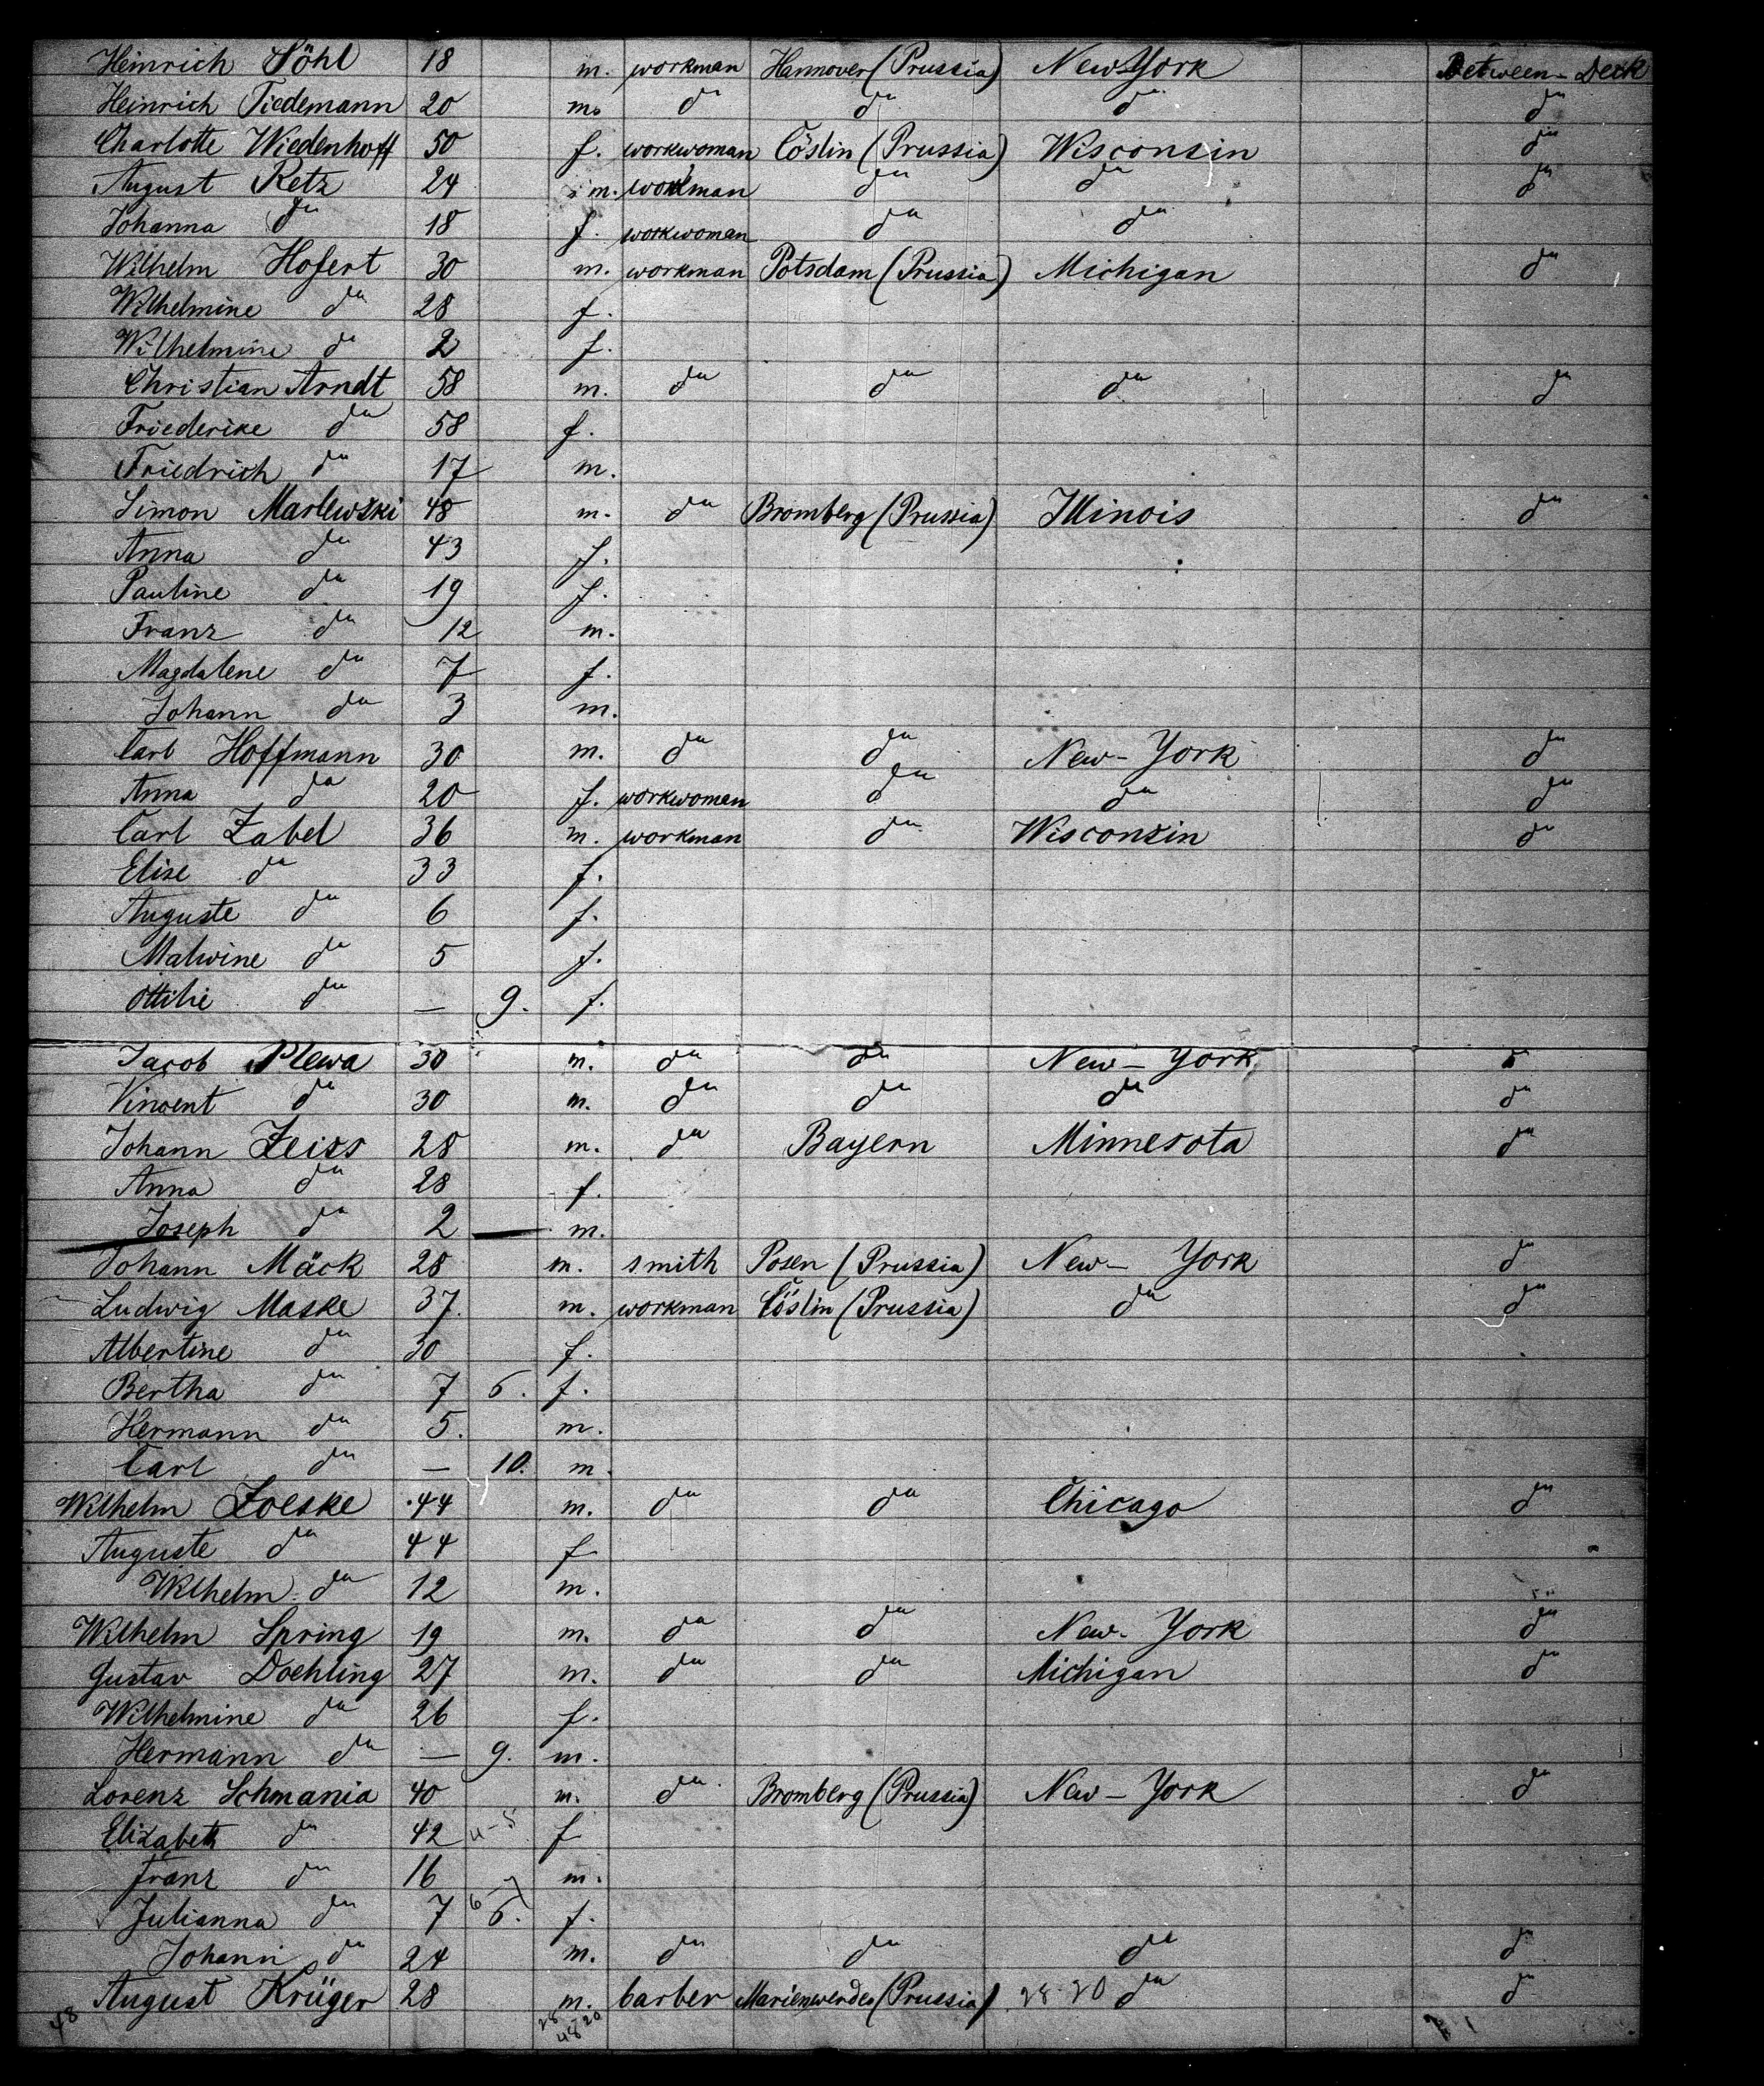 Heinrich Söhl 18 m. workman Hannover (Prussia) New York Between-Deck
Heinrich Tiedemann 20 m. do do do do
Charlotte Wiedenhoff 50 f. workwoman Cöslin (Prussia) Wisconsin do
August Retz 24 m. workman do do do
Johanna do 18 f. workwoman do do
Wilhelm Hofert 30 m. workman Potsdam (Prussia) Michigan do
Wilhelmine do 28 f.
Wilhelmine do 2 f.
Christian Arndt 58 m. do do do do
Friederike do 58 f.
Friedrich do 17 m.
Simon Marlewski 48 m. do Bromberg (Prussia) Illinois do
Anna do 43 f.
Pauline do 19 f.
Franz do 12 m.
Magdalene do 7 f.
Johann do 3 m.
Carl Hoffmann 30 m. do do New-York do
Anna do 20 f. workwoman do do do
Carl Zabel 36 m. workman do Wisconsin do
Elise do 33 f.
Auguste do 6 f.
Malwine do 5 f.
Ottilie do — 9. f.
Jacob Plewa 30 m. do do New-York do
Vincent do 30 m. do do do do
Johann Zeiss 28 m. do Bayern Minnesota do
Anna do 28 f.
Joseph do 2 — m.
Johann Mäck 28 m. smith Posen (Prussia) New-York do
Ludwig Maske 37. m. workman Cöslin (Prussia) do do
Albertine do 30 f.
Bertha do 7 6. f.
Hermann do 5. m.
Carl do — 10. m.
Wilhelm Zoeske 44 m. do do Chicago do
Auguste do 44 f
Wilhelm do 12 m.
Wilhelm Spring 19 m. do do New-York do
Gustav Doehling 27 m. do do Michigan do
Wilhelmine do 26 f.
Hermann do — 9. m.
Lorenz Schmania 40 m. do Bromberg (Prussia) New-York do
Elizabeth do 42 f
Franz do 16 m.
Julianna do 7 6. f.
Johann do 24 m. do do do do
August Krüger 28 m. barber Marienwerder (Prussia) 28-20 do do
48 28 20
48